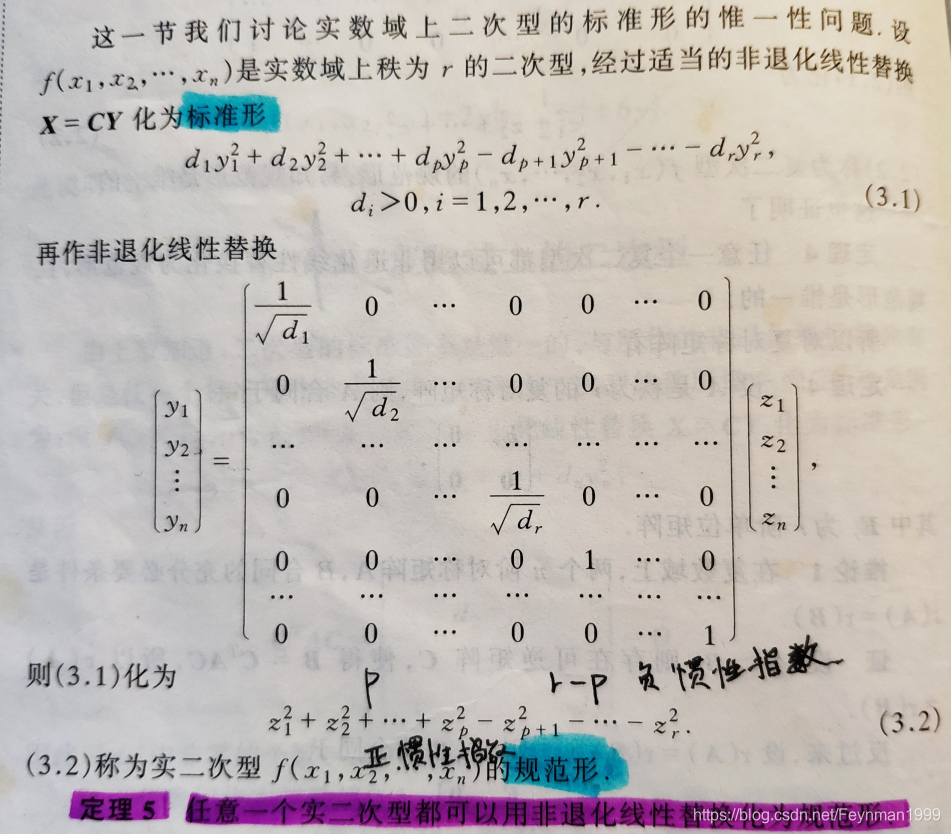 这一节我们讨论实数域上二次型的标准形的惟一性问题.设
f(x₁,x₂,⋯,xₙ)是实数域上秩为 r 的二次型,经过适当的非退化线性替换
X=CY 化为标准形
d₁y₁²+d₂y₂²+⋯+dₚyₚ²−dₚ₊₁yₚ₊₁²−⋯−dᵣyᵣ²,
dᵢ>0,i=1,2,⋯,r. (3.1)
再作非退化线性替换
1/√d₁ 0 ⋯ 0 0 ⋯ 0
0 1/√d₂ ⋯ 0 0 ⋯ 0
⋯ ⋯ ⋯ ⋯ ⋯ ⋯ ⋯
0 0 ⋯ 1/√dᵣ 0 ⋯ 0
0 0 ⋯ 0 1 ⋯ 0
⋯ ⋯ ⋯ ⋯ ⋯ ⋯ ⋯
0 0 ⋯ 0 0 ⋯ 1
y₁ y₂ ⋮ yₙ = z₁ z₂ ⋮ zₙ ,
则(3.1)化为
p r-p 负惯性指数
z₁²+z₂²+⋯+zₚ²−zₚ₊₁²−⋯−zᵣ². (3.2)
正惯性指数
(3.2)称为实二次型 f(x₁,x₂,⋯,xₙ)的规范形.
定理 5 任意一个实二次型都可以用非退化线性替换化为规范形
https://blog.csdn.net/Feynman1999